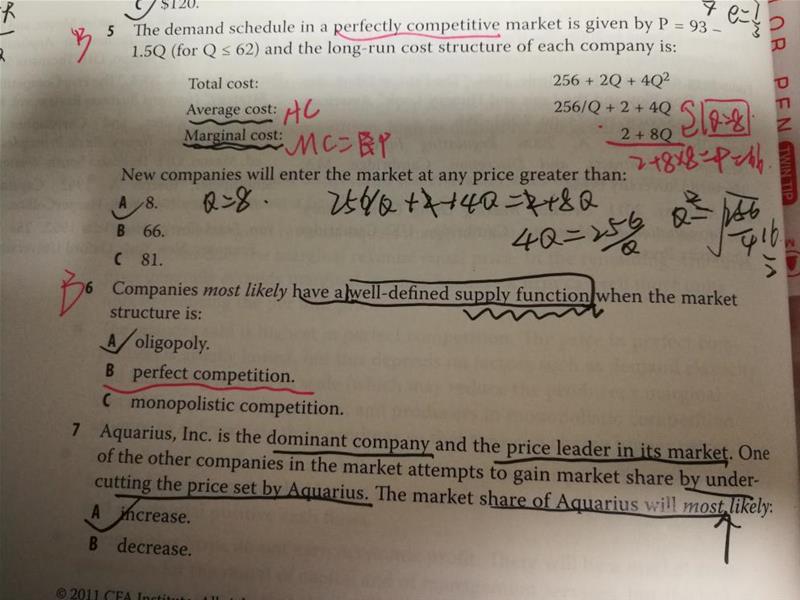 C $120.
5 The demand schedule in a perfectly competitive market is given by P = 93 –
1.5Q (for Q ≤ 62) and the long-run cost structure of each company is:
B
Total cost: 256 + 2Q + 4Q²
Average cost: AC 256/Q + 2 + 4Q
Marginal cost: MC = P 2 + 8Q
Q=8
2+8×8=P=66
New companies will enter the market at any price greater than:
A 8. Q=8. 256/Q + 2 + 4Q = 2 + 8Q
B 66. 4Q = 256/Q
C 81.
B
6 Companies most likely have a well-defined supply function when the market
structure is:
A oligopoly.
B perfect competition.
C monopolistic competition.
7 Aquarius, Inc. is the dominant company and the price leader in its market. One
of the other companies in the market attempts to gain market share by under-
cutting the price set by Aquarius. The market share of Aquarius will most likely:
A increase.
B decrease.
© 2011 CFA Institute.
PEN
TWIN TIP